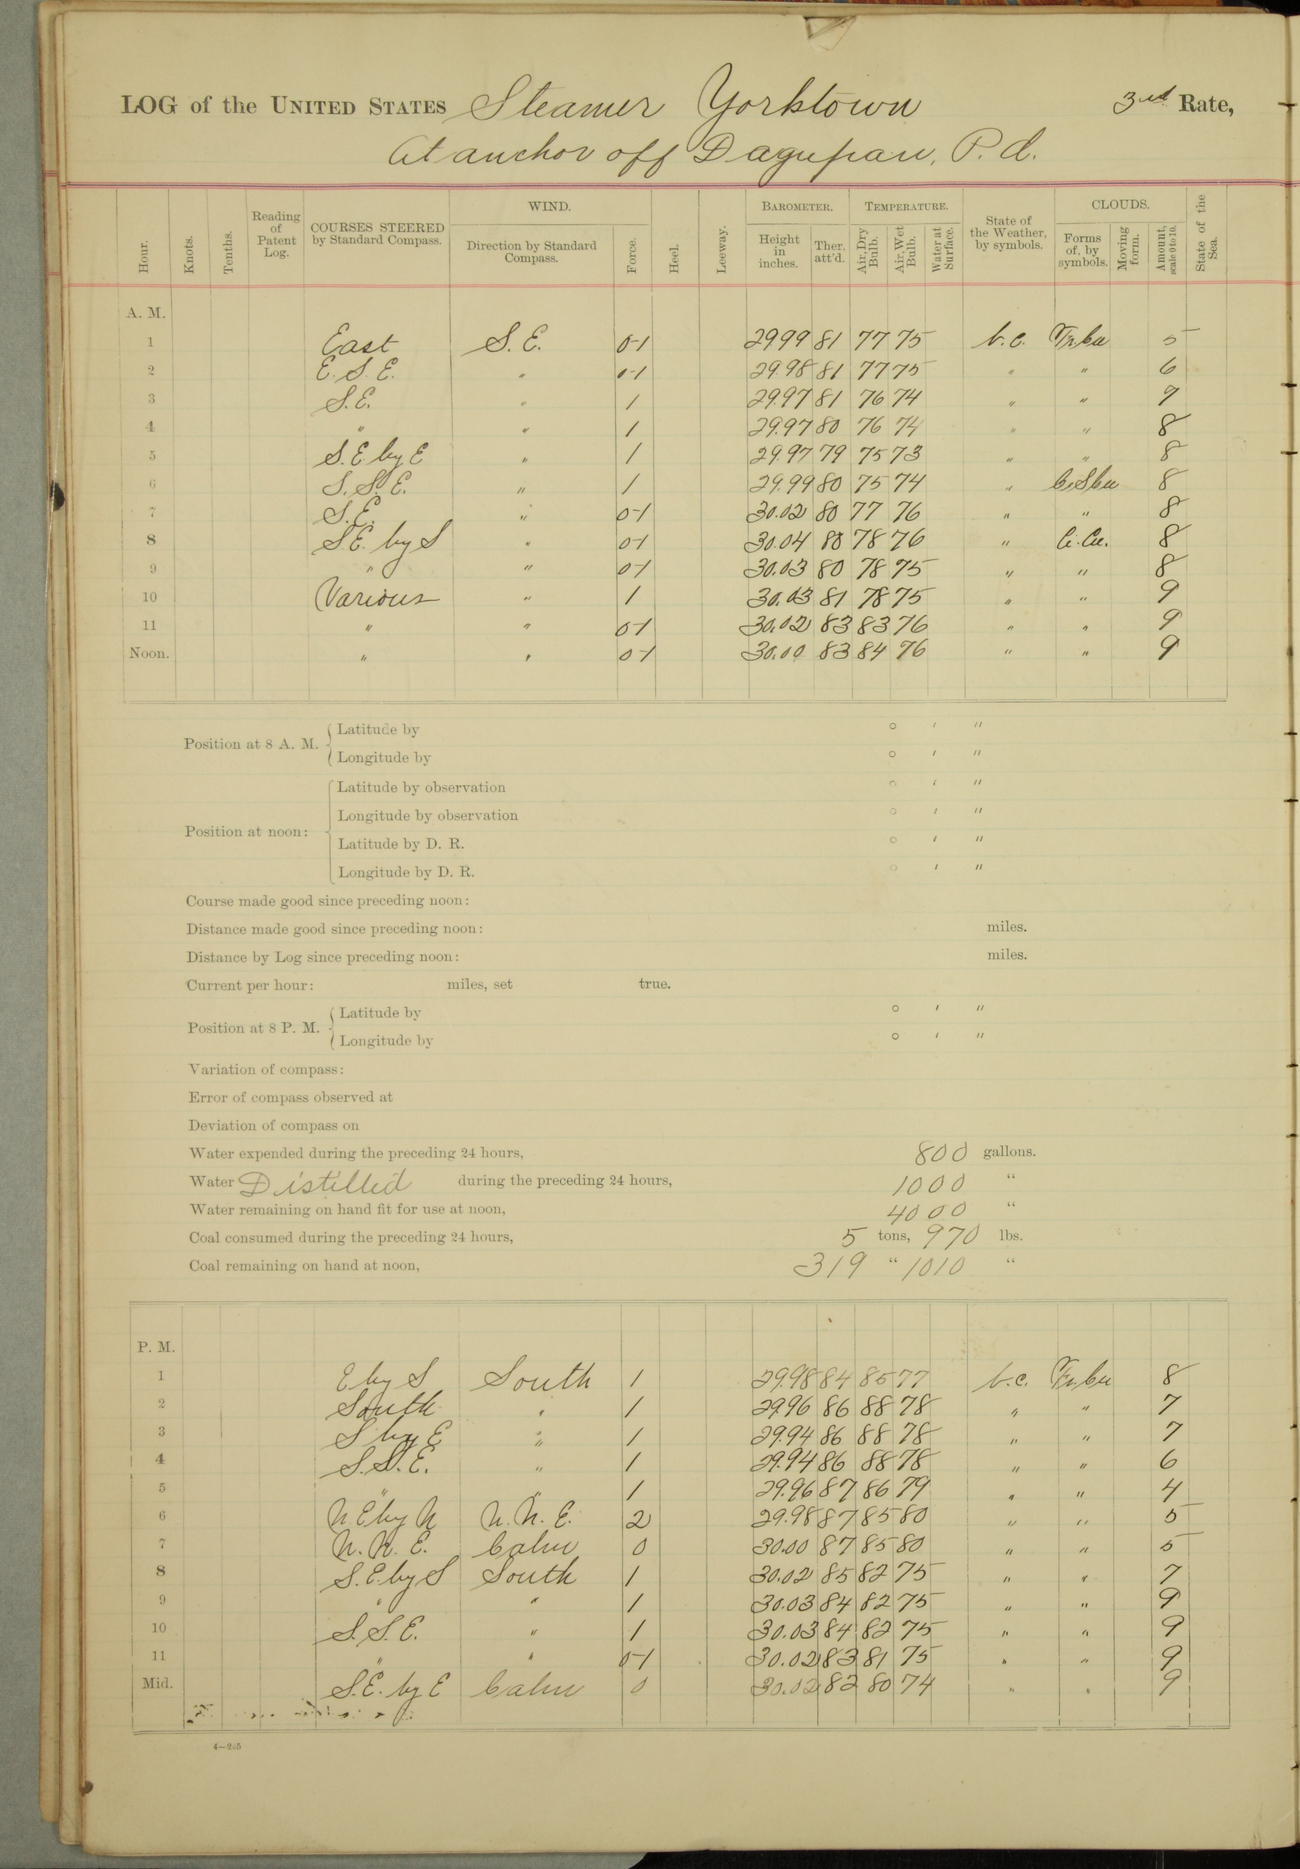 LOG of the UNITED STATES Steamer Yorktown 3rd Rate,
At anchor off Dagupan, P. I.
Hour. Knots. Tenths. Reading of Patent Log. COURSES STEERED by Standard Compass. WIND. Direction by Standard Compass. Force. Heel. Leeway. BAROMETER. Height in inches. Ther. att'd. TEMPERATURE. Air, Dry Bulb. Air, Wet Bulb. Water at Surface. State of the Weather, by symbols. CLOUDS. Forms of, by symbols. Moving form. Amount, scale 0 to 10. State of the Sea.
A. M.
1 East S. E. 0-1 29.99 81 77 75 b. c. Fr. Cu 5
2 E. S. E. " 0-1 29.98 81 77 75 " " 6
3 S. E. " 1 29.97 81 76 74 " " 7
4 " " 1 29.97 80 76 74 " " 8
5 S. E by E " 1 29.97 79 75 73 " " 8
6 S. S. E. " 1 29.99 80 75 74 " C. S cu 8
7 S. E. " 0-1 30.02 80 77 76 " " 8
8 S E. by S " 0-1 30.04 80 78 76 " Ci. Cu. 8
9 " " 0-1 30.03 80 78 75 " " 8
10 Various " 1 30.03 81 78 75 " " 9
11 " " 0-1 30.02 83 83 76 " " 9
Noon. " " 0-1 30.00 83 84 76 " " 9
Position at 8 A. M. Latitude by ° ′ ″
Longitude by ° ′ ″
Position at noon: Latitude by observation ° ′ ″
Longitude by observation ° ′ ″
Latitude by D. R. ° ′ ″
Longitude by D. R. ° ′ ″
Course made good since preceding noon:
Distance made good since preceding noon: miles.
Distance by Log since preceding noon: miles.
Current per hour: miles, set true.
Position at 8 P. M. Latitude by ° ′ ″
Longitude by ° ′ ″
Variation of compass:
Error of compass observed at
Deviation of compass on
Water expended during the preceding 24 hours, 800 gallons.
Water Distilled during the preceding 24 hours, 1000 "
Water remaining on hand fit for use at noon, 4000 "
Coal consumed during the preceding 24 hours, 5 tons, 970 lbs.
Coal remaining on hand at noon, 319 " 1010 "
P. M.
1 E by S South 1 29.98 84 85 77 b. c. Fr. Cu 8
2 South " 1 29.96 86 88 78 " " 7
3 S by E " 1 29.94 86 88 78 " " 7
4 S. S. E. " 1 29.94 86 88 78 " " 6
5 " " 1 29.96 87 86 79 " " 4
6 N E by N N. N. E. 2 29.98 87 85 80 " " 5
7 N. N. E. Calm 0 30.00 87 85 80 " " 5
8 S. E. by S South 1 30.02 85 82 75 " " 7
9 " " 1 30.03 84 82 75 " " 9
10 S. S. E. " 1 30.03 84 82 75 " " 9
11 " " 0-1 30.02 83 81 75 " " 9
Mid. S. E. by E Calm 0 30.02 82 80 74 " " 9